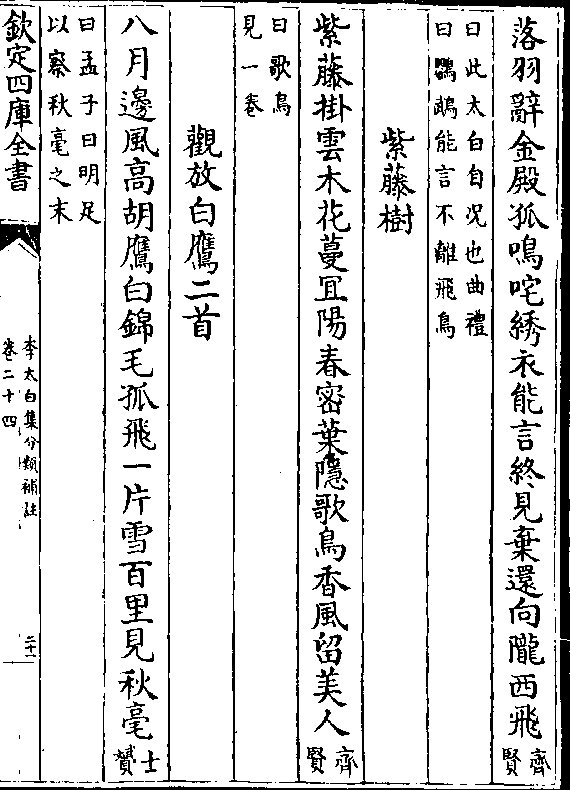 落羽辭金殿孤鳴咤綉衣能言終見棄還向隴西飛齊賢
曰此太白自况也曲禮
曰鸚鵡能言不離飛鳥
紫藤樹
紫藤掛雲木花蔓冝陽春密葉隱歌鳥香風留美人齊賢
曰歌鳥
見一卷
觀放白鷹二首
八月邊風高胡鷹白錦毛孤飛一片雪百里見秋毫士贇
曰孟子曰明足
以察秋毫之末
欽定四庫全書
李太白集分類補註
卷二十四
二十一